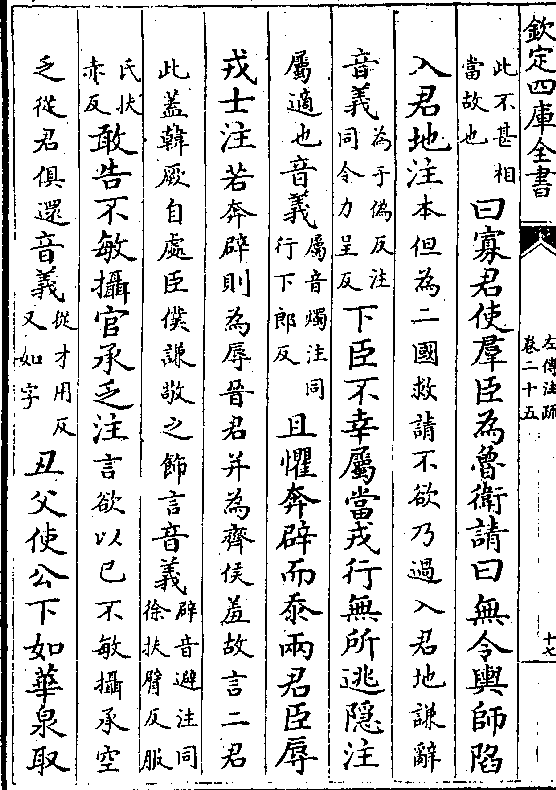 欽定四庫全書
左傳注疏
卷二十五
十七
此不甚相
當故也
曰寡君使羣臣為魯衛請曰無令輿師陷
入君地注本但為二國救請不欲乃過入君地謙辭
音義
為于偽反注
同令力呈反
下臣不幸屬當戎行無所逃隱注
屬適也音義
屬音燭注同
行下郎反
且懼奔辟而忝兩君臣辱
戎士注若奔辟則為辱晉君并為齊侯羞故言二君
此蓋韓厥自處臣僕謙敬之飾言音義
辟音避注同
徐扶臂反服
氏扶
赤反
敢告不敏攝官承乏注言欲以已不敏攝承空
乏從君俱還音義
從才用反
又如字
丑父使公下如華泉取